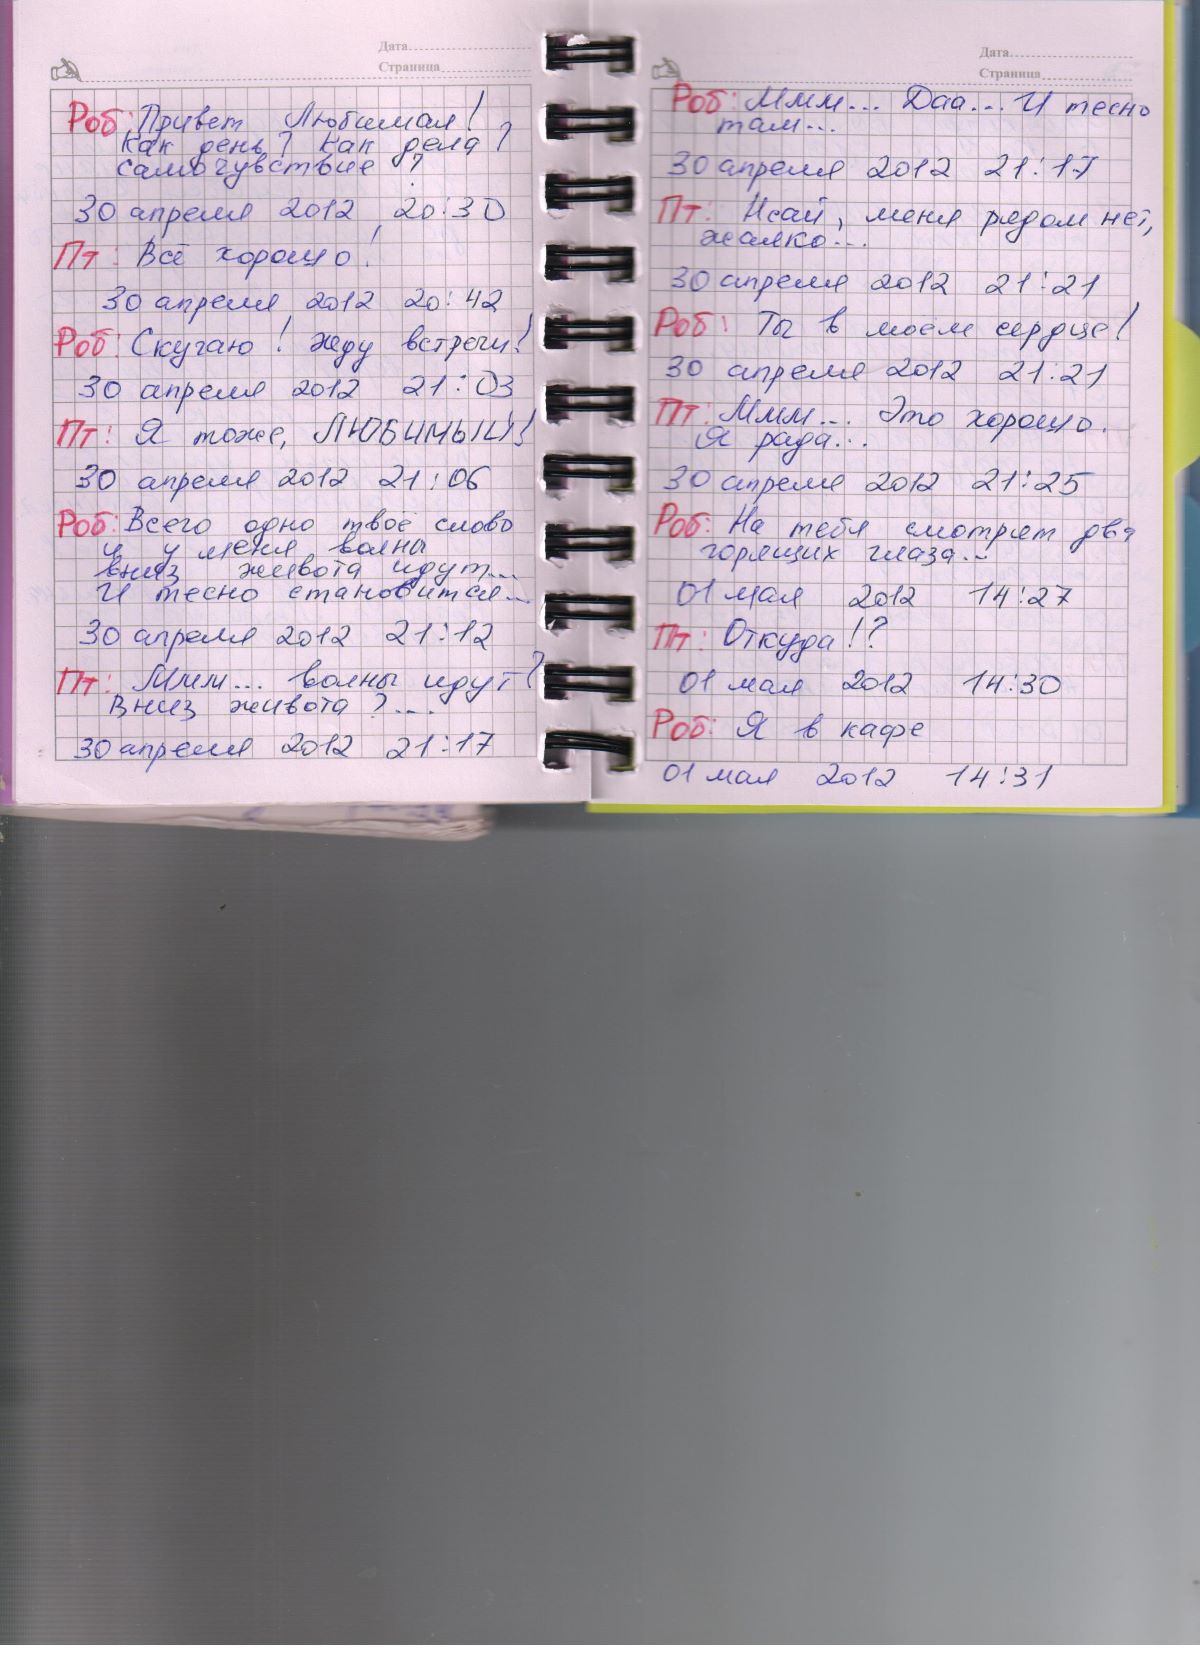 Дата
Страница
Роб: Привет Любимая!
Как день? Как дела?
Самочувствие?
30 апреля 2012 20:30
Пт: Всё хорошо!
30 апреля 2012 20:42
Роб: Скучаю! Жду встречи!
30 апреля 2012 21:03
Пт: Я тоже, ЛЮБИМЫЙ!
30 апреля 2012 21:06
Роб: Всего одно твоё слово
и у меня волны
вниз живота идут...
И тесно становится...
30 апреля 2012 21:12
Пт: Ммм... волны идут
вниз живота?...
30 апреля 2012 21:17
Дата
Страница
Роб: Ммм... Даа... И тесно
там...
30 апреля 2012 21:17
Пт: меня рядом нет,
жалко...
30 апреля 2012 21:21
Роб: Ты в моём сердце!
30 апреля 2012 21:21
Пт: Ммм... Это хорошо.
Я рада...
30 апреля 2012 21:25
Роб: На тебя смотрят два
горящих глаза...
01 мая 2012 14:27
Пт: Откуда!?
01 мая 2012 14:30
Роб: Я в кафе
01 мая 2012 14:31